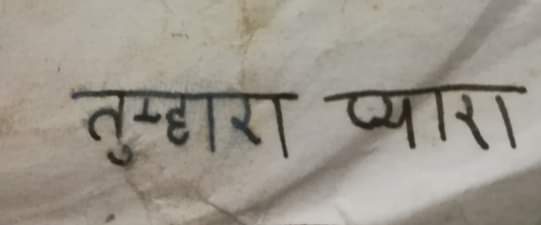 तुम्हारा प्यारा